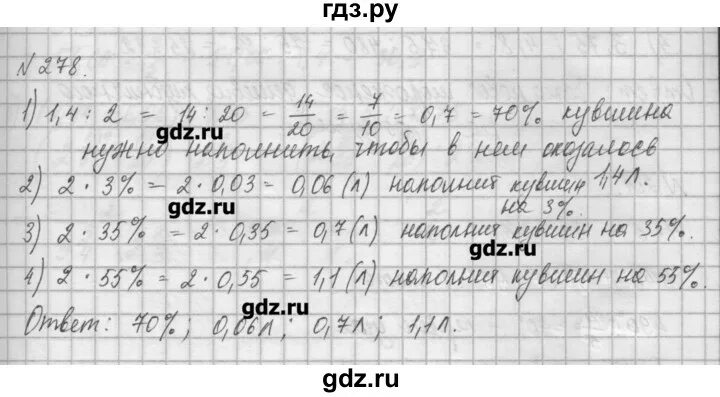 гдз.ру
N 278.
1) 1,4 : 2 = 14 : 20 = 14/20 = 7/10 = 0,7 = 70% кувшина
gdz.ru
нужно наполнить, чтобы в нем оказалось
2) 2 · 3% = 2 · 0,03 = 0,06 (л) наполнит кувшин 1,4л.
gdz.ru
на 3%.
3) 2 · 35% = 2 · 0,35 = 0,7 (л) наполнит кувшин на 35%.
gdz.ru
4) 2 · 55% = 2 · 0,55 = 1,1 (л) наполнит кувшин на 55%.
gdz.ru
Ответ: 70%; 0,06л; 0,7л; 1,1л.
gdz.ru